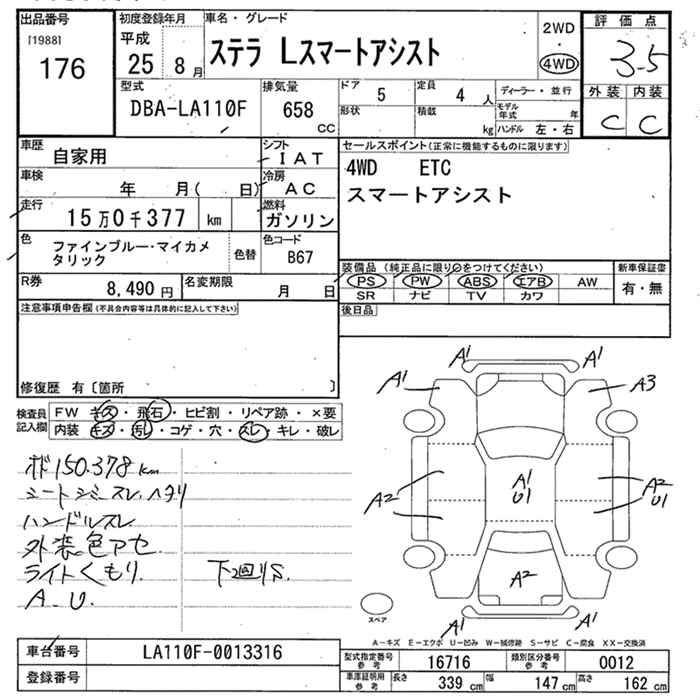 出品番号 初度登録年月 車名・グレード 2WD 評価点
[1988] 176 平成 25 8月 ステラ Lスマートアシスト 4WD 3.5
型式 排気量 ドア 5 定員 4人 ディーラー・並行 外装 内装
DBA-LA110F 658 cc 形状 積載 kg モデル年式 年 C C
ハンドル 左・右
車歴 自家用 シフト I AT セールスポイント(正常に機能するものに限ります)
車検 年 月( 日) 冷房 AC 4WD ETC
走行 15万0千377 km 燃料 ガソリン スマートアシスト
色 ファインブルー・マイカメタリック 色替 色コード B67
R券 8,490円 名変期限 月 日
装備品(純正品に限り○をつけてください) 新車保証書
PS PW ABS エアB AW 有・無
SR ナビ TV カワ
注意事項申告欄(不具合内容等は具体的に記入して下さい) 後日品
修復歴 有〔箇所 〕
検査員記入欄 FW キズ・飛石・ヒビ割・リペア跡・×要
内装 キズ・汚レ・コゲ・穴・スレ・キレ・破レ
150.378km
シートシミ スレ ヘタリ
ハンドルスレ
外装色アセ
ライトくもり. 下廻りS.
A. U.
A1 A1
A1 A3
A2 A1 U1 A2 U1
A2
A1
スペア
A-キズ E-エクボ U-凹み W-補修跡 S-サビ C-腐食 XX-交換済
車台番号 LA110F-0013316 型式指定番号 参考 16716 類別区分番号 参考 0012
登録番号 車庫証明用 参考 長さ 339 cm 幅 147 cm 高さ 162 cm